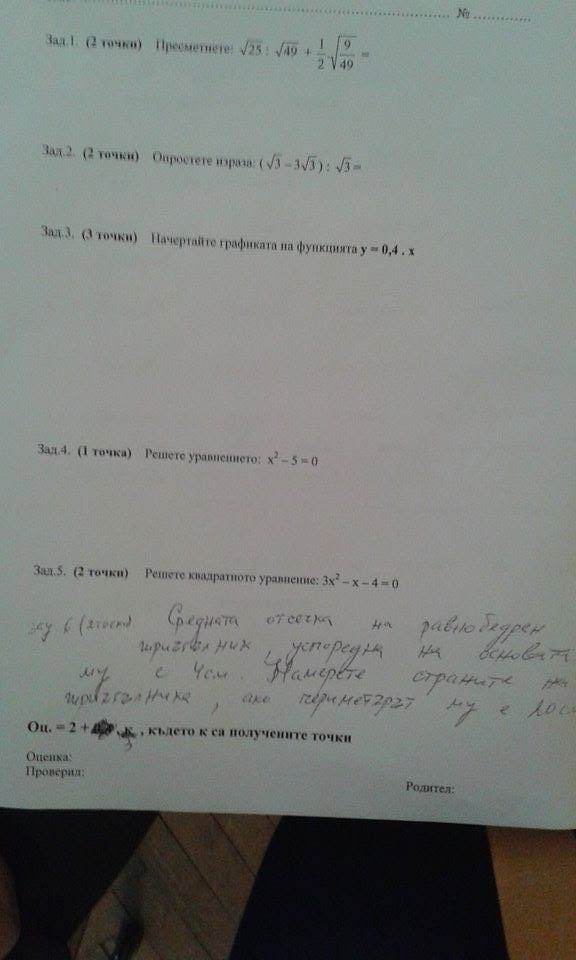 № ............
Зад.1. (2 точки) Пресметнете: √25 : √49 + 1/2 √(9/49) =
Зад.2. (2 точки) Опростете израза: ( √3 – 3√3 ) : √3 =
Зад.3. (3 точки) Начертайте графиката на функцията y = 0,4 . x
Зад.4. (1 точка) Решете уравнението: x² – 5 = 0
Зад.5. (2 точки) Решете квадратното уравнение: 3x² – x – 4 = 0
зад 6 (2 точки) Средната отсечка на равнобедрен
триъгълник, успоредна на основата
му е 4см. Намерете страните на
триъгълника, ако периметърът му е 20см
Оц. = 2 + к/3, където к са получените точки
Оценка:
Проверил:
Родител: